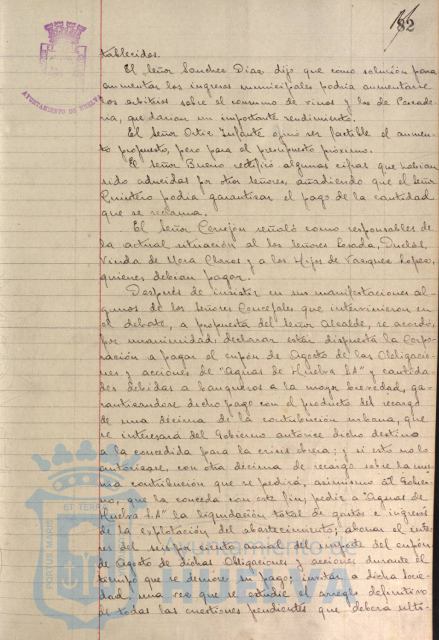 82
AYUNTAMIENTO DE HUELVA
tablecidos.
El Señor Sanchez Diaz, dijo que como solución para
aumentar los ingresos municipales podria aumentarse
los arbitrios sobre el consumo de vinos y los de Pescade-
ria, que darian un importante rendimiento.
El Señor Ortiz Infante opinó ser factible el aumen-
to propuesto, pero para el presupuesto próximo.
El Señor Bueno rectificó algunas cifras que habian
sido aducidas por otros señores, añadiendo que el Señor
Quintero podria garantizar el pago de la cantidad
que se reclama.
El Señor Cerejón señaló como responsables de
la actual situación al los Señores Duclós,
Viuda de Mora Claros y a los Hijos de Vazquez Lopez,
quienes debian pagar.
Después de insistir en sus manifestaciones al-
gunos de los Señores Concejales que intervinieron en
el debate, a propuesta del Señor Alcalde, se acordó,
por unanimidad, declarar estar dispuesta la Corpo-
ración a pagar el cupón de Agosto de las Obligacio-
nes y acciones de "Aguas de Huelva S.A." y cantida-
des debidas a banqueros a la mayor brevedad, ga-
rantizandose dicho pago con el producto del recargo
de una décima de la contribución urbana, que
se interesará del Gobierno autorice dicho destino
a la concedida para la crisis obrera; y si esto no lo
autorizase, con otra décima de recargo sobre la mis-
ma contribución que se pedirá, asimismo al Gobier-
no, que la conceda con este fin; pedir a "Aguas de
Huelva S.A." la liquidación total de gastos e ingresos
de la explotación del abastecimiento; abonar el inte-
res del seis por ciento anual del importe del cupón
de Agosto de dichas Obligaciones y acciones durante el
tiempo que se demore su pago; invitar a dicha Socie-
dad, una vez que se estudie el arreglo definitivo
de todas las cuestiones pendientes que deberá ulti-